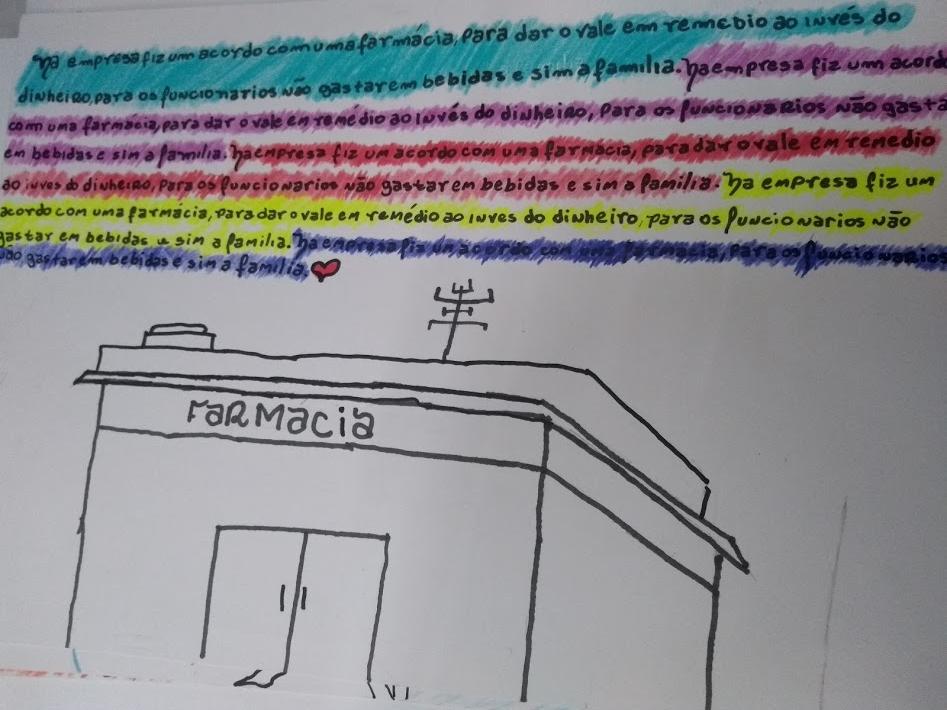 Na empresa fiz um acordo com uma farmácia, para dar o vale em remebio ao invés do
dinheiro, para os funcionarios não gastarem bebidas e sim a família. Na empresa fiz um acord
com uma farmácia, para dar o vale em remédio ao invés do dinheiro, para os funcionarios não gasta
em bebidas e sim a familia. Na empresa fiz um acordo com uma farmácia, para dar o vale em remedio
ao inves do dinheiro, para os funcionarios não gastarem bebidas e sim a familia. Na empresa fiz um
acordo com uma farmácia, para dar o vale em remédio ao inves do dinheiro, para os funcionarios não
gastar em bebidas e sim a familia. Na empresa fiz um acordo com uma farmacia, para os funcionarios
não gastarem bebidas e sim a família.
FARMacia